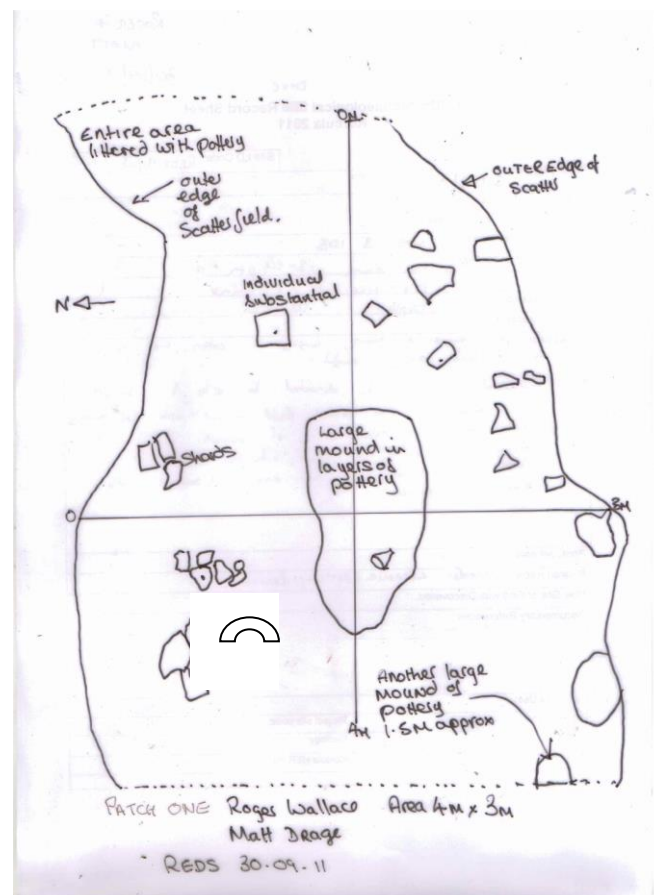 0M
Entire area
littered with pottery
outer
edge
of
Scatterfield.
OUTER Edge of
Scatter
N
Individual
Substantial
Large
mound in
layers of
pottery
Shards
0
3M
Another large
mound of
pottery
1.5M approx
4M
PATCH ONE Roger Wallace Area 4M x 3M
Matt Drage
REDS 30.09.11